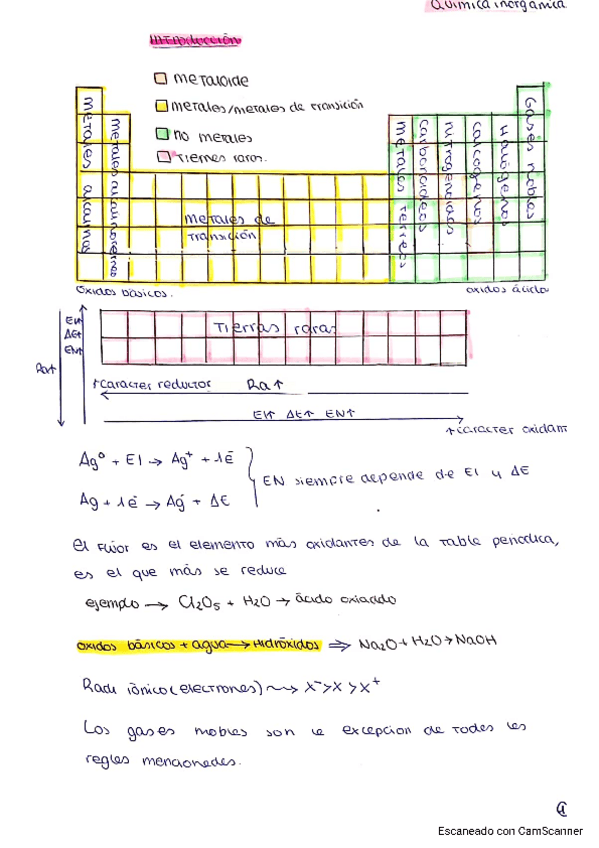 Química inorgánica
Introducción
metaloide
metales/metales de transición
no metales
Tierres raras.
metales alcalinos
metales alcalinoterreos
metales de
transición
metales terreos
carbonoideos
nitrogenoideos
calcogenos
Halógenos
Gases nobles
óxidos básicos.
oxidos ácido
EI↑
ΔE↑
EN↑
Ra↑
Tierras raras
↑caracter reductor Ra↑
EI↑ ΔE↑ EN↑
↑caracter oxidant
Ag⁰ + EI → Ag⁺ + 1ē
Ag + 1ē → Ag⁻ + ΔE
EN siempre depende de EI y ΔE
el Fluor es el elemento más oxidantes de la table periodica,
es el que más se reduce
ejemplo → Cl₂O₅ + H₂O → ácido oxiacido
oxidos básicos + agua → Hidróxidos ⇒ Na₂O + H₂O → NaOH
Radi iónico (electrones) ⇝ X⁻ > X > X⁺
Los gases nobles son le excepcion de todes les
regles mencionedes.
Escaneado con CamScanner